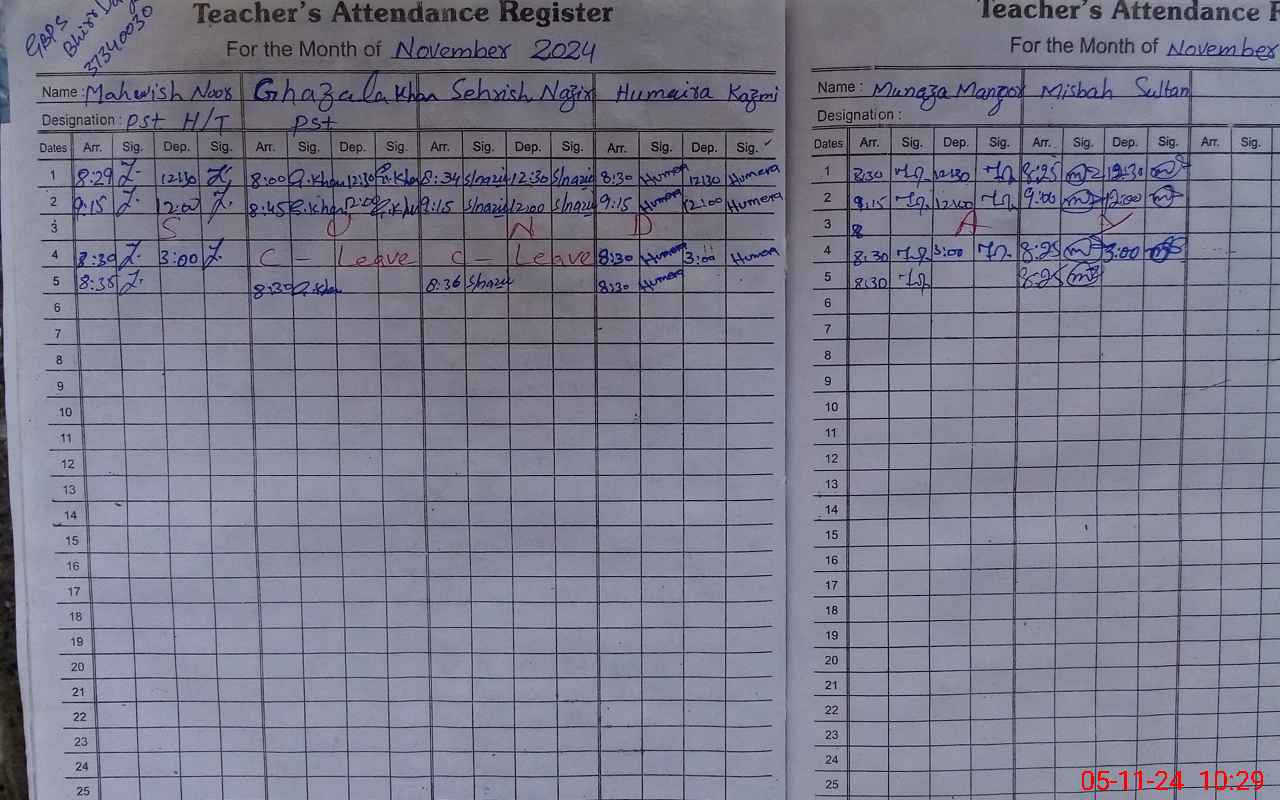 GBPS
Bhiri
37340030
Teacher's Attendance Register
For the Month of November 2024
Name : Mahwish Noor Ghazala Khan Sehrish Nazir Humaira Kazmi
Designation : PST H/T PST
Dates Arr. Sig. Dep. Sig. Arr. Sig. Dep. Sig. Arr. Sig. Dep. Sig. Arr. Sig. Dep. Sig.
1 8:29 12:30 8:00 G.Khan 12:30 G.Khan 8:34 S/nazir 12:30 S/nazir 8:30 Humera 12:30 Humera
2 9:15 12:00 8:45 G.Khan 12:00 G.Khan 9:15 S/nazir 12:00 S/nazir 9:15 Humera 12:00 Humera
3 S U N D
4 8:30 3:00 C - Leave C - Leave 8:30 Humera 3:00 Humera
5 8:38 8:30 G.Khan 8:36 S/nazir 8:30 Humera
6
7
8
9
10
11
12
13
14
15
16
17
18
19
20
21
22
23
24
25
Teacher's Attendance
For the Month of November
Name : Munaza Manzoor Misbah Sultan
Designation :
Dates Arr. Sig. Dep. Sig. Arr. Sig. Dep. Sig. Arr. Sig.
1 8:30 12:30 8:25 12:30
2 9:15 12:00 9:00 12:00
3 8 A Y
4 8:30 3:00 8:25 3:00
5 8:30 8:25
6
7
8
9
10
11
12
13
14
15
16
17
18
19
20
21
22
23
24
25
05-11-24 10:29